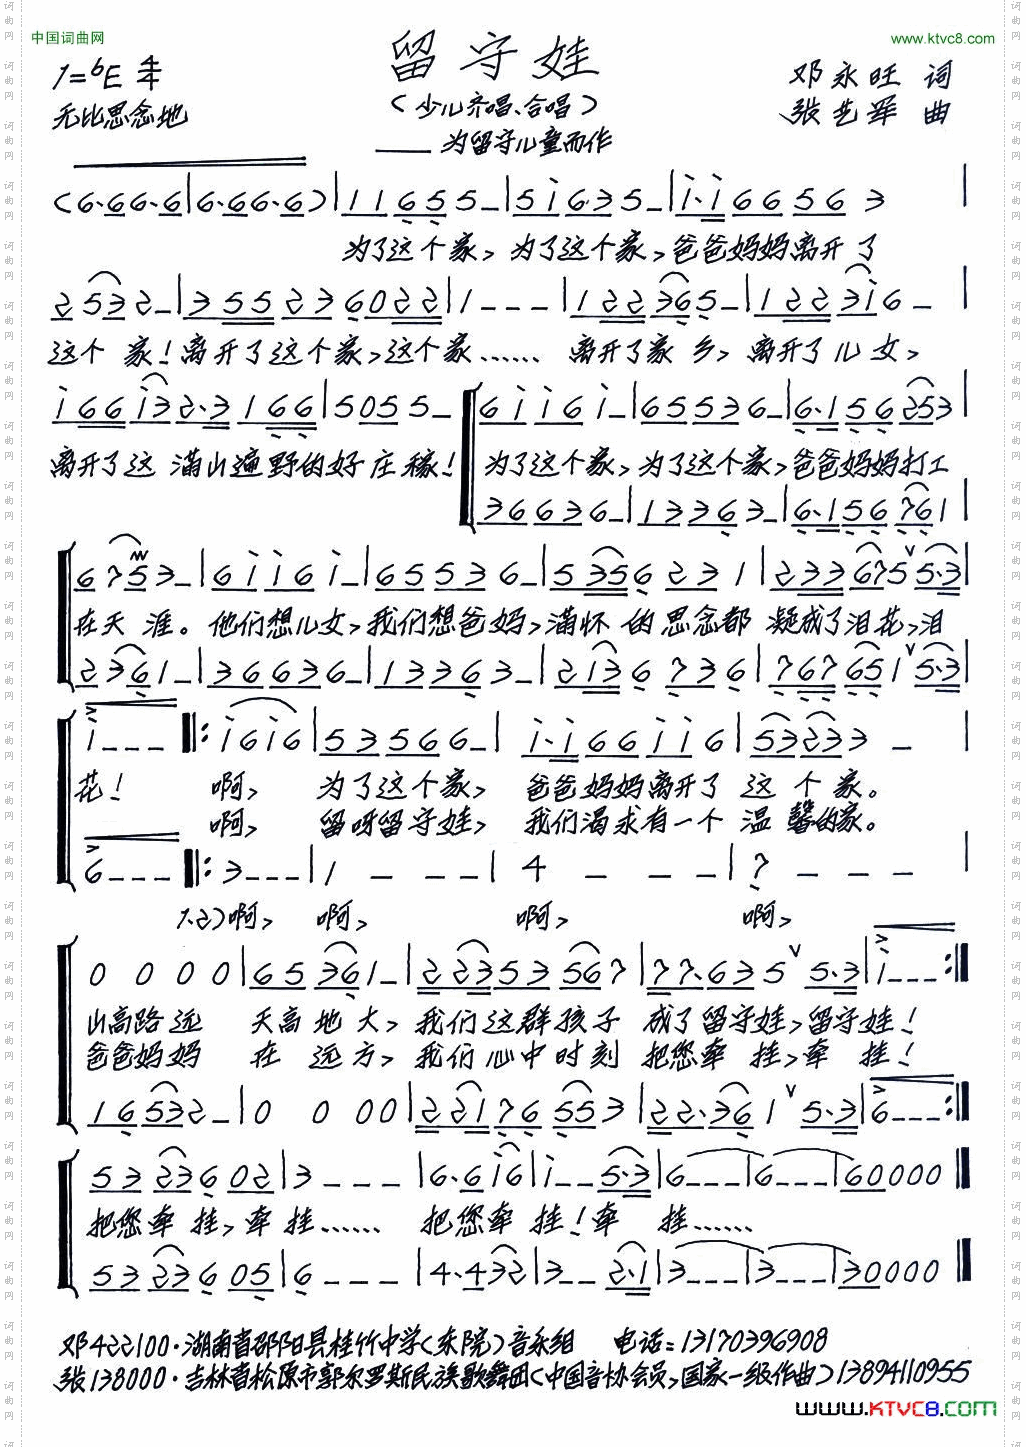 中国词曲网
www.ktvc8.com
留守娃
1=♭E 4/4
（少儿齐唱、合唱）
邓永旺 词
无比思念地
——为留守儿童而作
张艺军 曲
(6·66·6|6·66·6)|11655_|516·35_|1·1 66 56 3|
为了这个家，为了这个家，爸爸妈妈离开了
2532_|355236022|1___|122365_|122316_|
这个家！离开了这个家，这个家…… 离开了家乡，离开了儿女，
166132·3166|50555_|61161_|65536_|6·156253|
离开了这满山遍野的好庄稼！为了这个家，为了这个家，爸爸妈妈打工
366366_|13363_|6·156761|
6753_|61161_|65536_|5356231|233675ˇ5·3|
在天涯。他们想儿女，我们想爸妈，满怀的思念都凝成了泪花，泪
2361_|366366_|13363_|2136736|767651ˇ5·3|
1___‖:1616|535666_|1·166116|53233_|
花！ 啊， 为了这个家， 爸爸妈妈离开了这个家。
啊， 留呀留守娃， 我们渴求有一个温馨的家。
6___‖:3___|1___|4___|7___|
1.2)啊， 啊， 啊， 啊，
0000|65361_|22353567|77·635ˇ5·3|1___:‖
山高路远 天高地大，我们这群孩子 成了留守娃，留守娃！
爸爸妈妈 在远方，我们心中时刻 把您牵挂，牵挂！
16532_|0000|22176553|22·361ˇ5·3|6___:‖
5323602|3___|6·616|1__5·3|6___|6___|60000‖
把您牵挂，牵挂…… 把您牵挂！牵挂……
5323605|6___|4·432|3__2·1|3___|3___|30000‖
邓422100·湖南省邵阳县桂竹中学（东院）音乐组 电话=13170396908
张138000·吉林省松原市郭尔罗斯民族歌舞团（中国音协会员，国家一级作曲）13894110955
www.KTVC8.COM